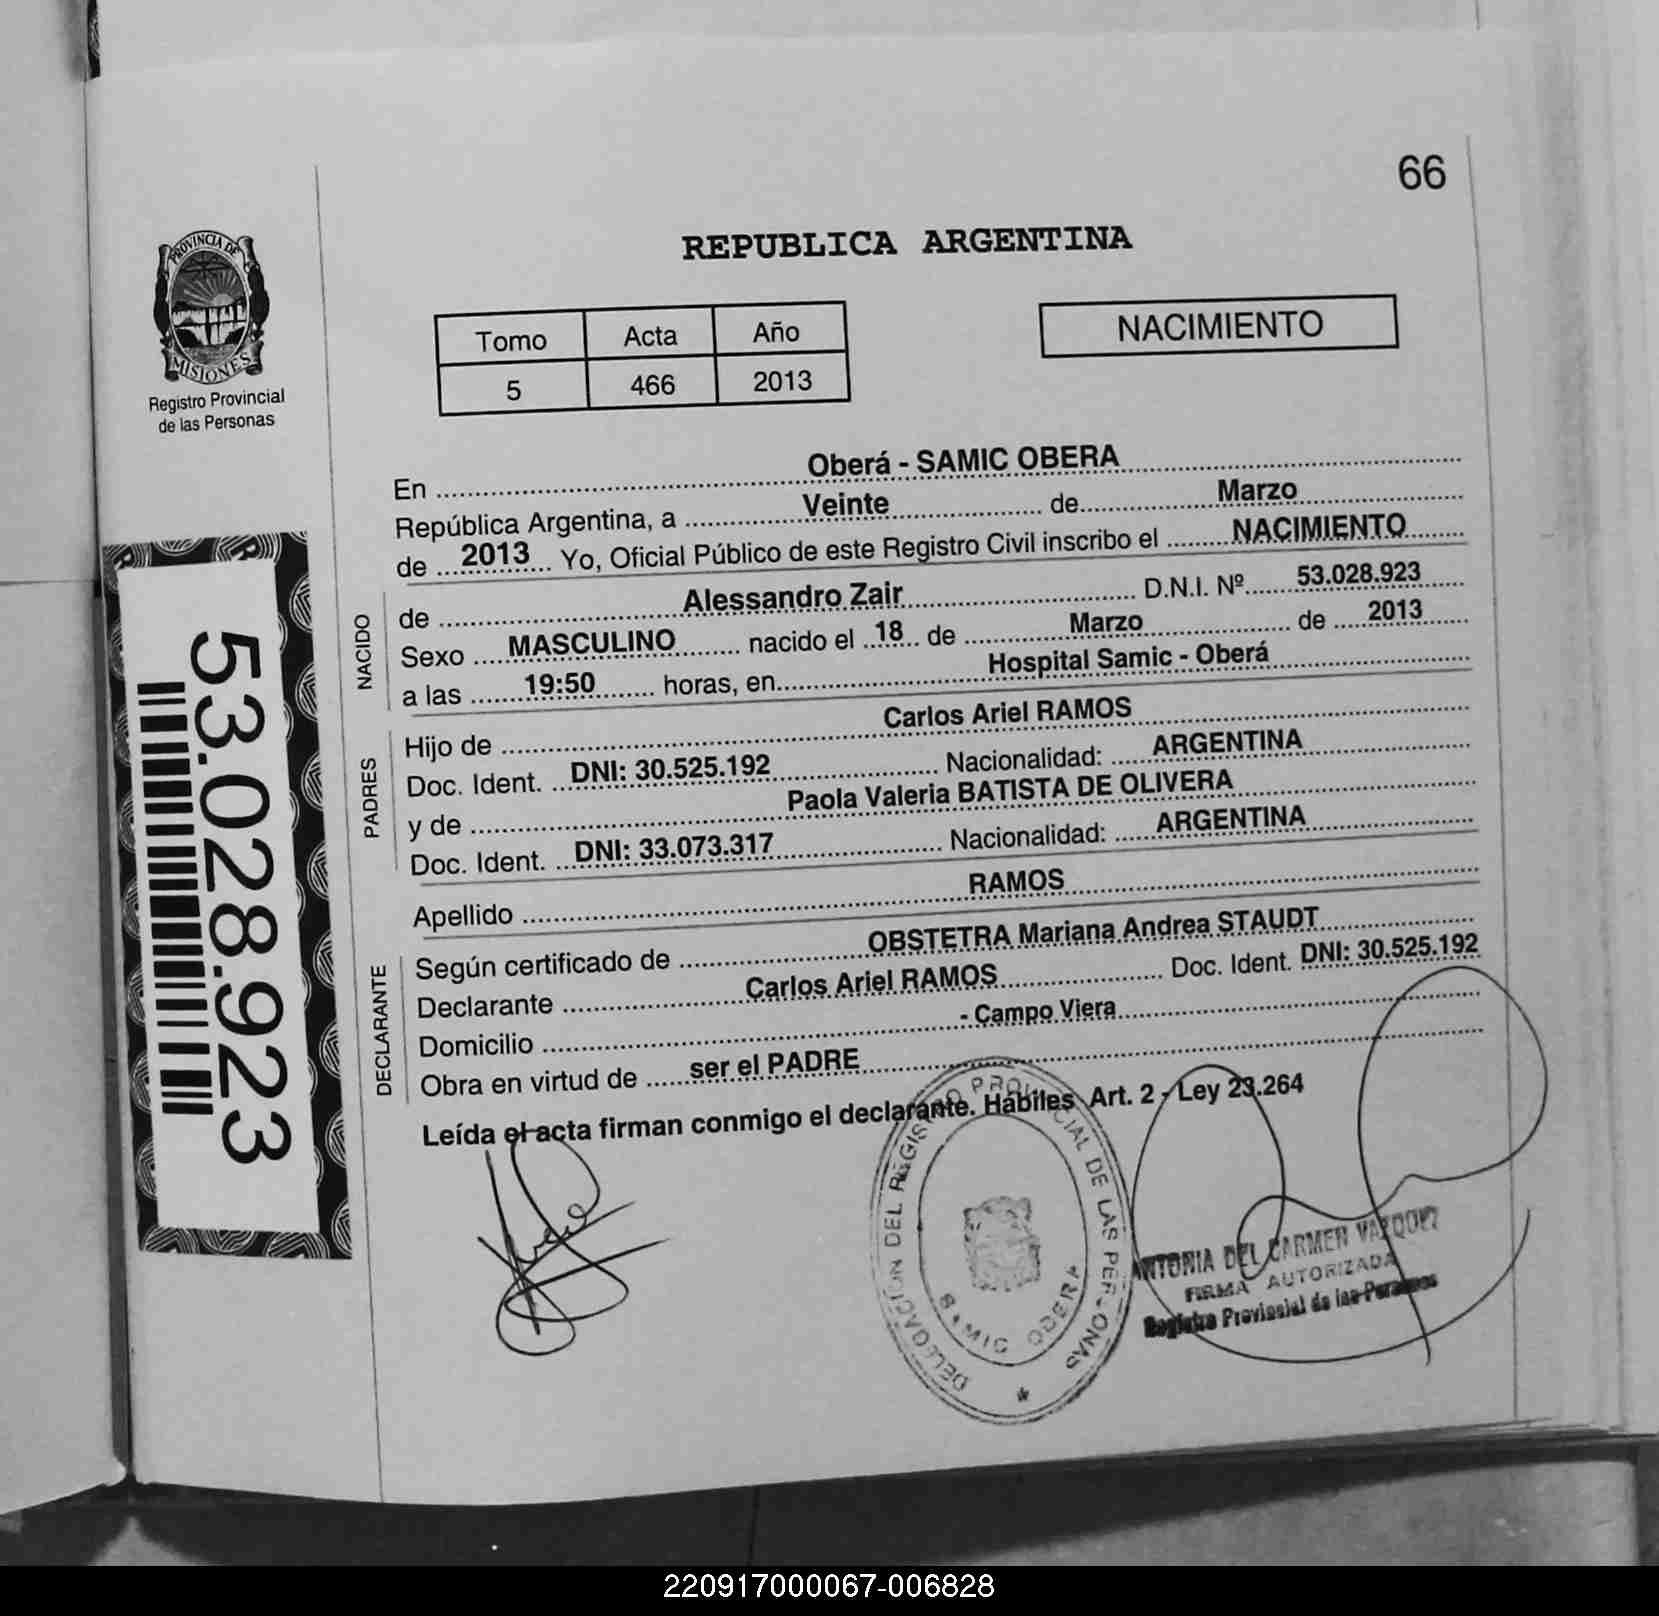 66
PROVINCIA DE
MISIONES
Registro Provincial
de las Personas
REPUBLICA ARGENTINA
Tomo Acta Año
5 466 2013
NACIMIENTO
En Oberá - SAMIC OBERA
República Argentina, a Veinte de Marzo
de 2013 Yo, Oficial Público de este Registro Civil inscribo el NACIMIENTO
NACIDO
de Alessandro Zair D.N.I. Nº 53.028.923
Sexo MASCULINO nacido el 18 de Marzo de 2013
a las 19:50 horas, en Hospital Samic - Oberá
PADRES
Hijo de Carlos Ariel RAMOS
Doc. Ident. DNI: 30.525.192 Nacionalidad: ARGENTINA
y de Paola Valeria BATISTA DE OLIVERA
Doc. Ident. DNI: 33.073.317 Nacionalidad: ARGENTINA
Apellido RAMOS
DECLARANTE
Según certificado de OBSTETRA Mariana Andrea STAUDT
Declarante Carlos Ariel RAMOS Doc. Ident. DNI: 30.525.192
Domicilio - Campo Viera
Obra en virtud de ser el PADRE
Leída el acta firman conmigo el declarante. Hábiles Art. 2 - Ley 23.264
53.028.923
DELEGACION DEL REGISTRO PROVINCIAL DE LAS PERSONAS
SAMIC OBERA
ANTONIA DEL CARMEN VAZQUEZ
FIRMA AUTORIZADA
Registro Provincial de las Personas
220917000067-006828